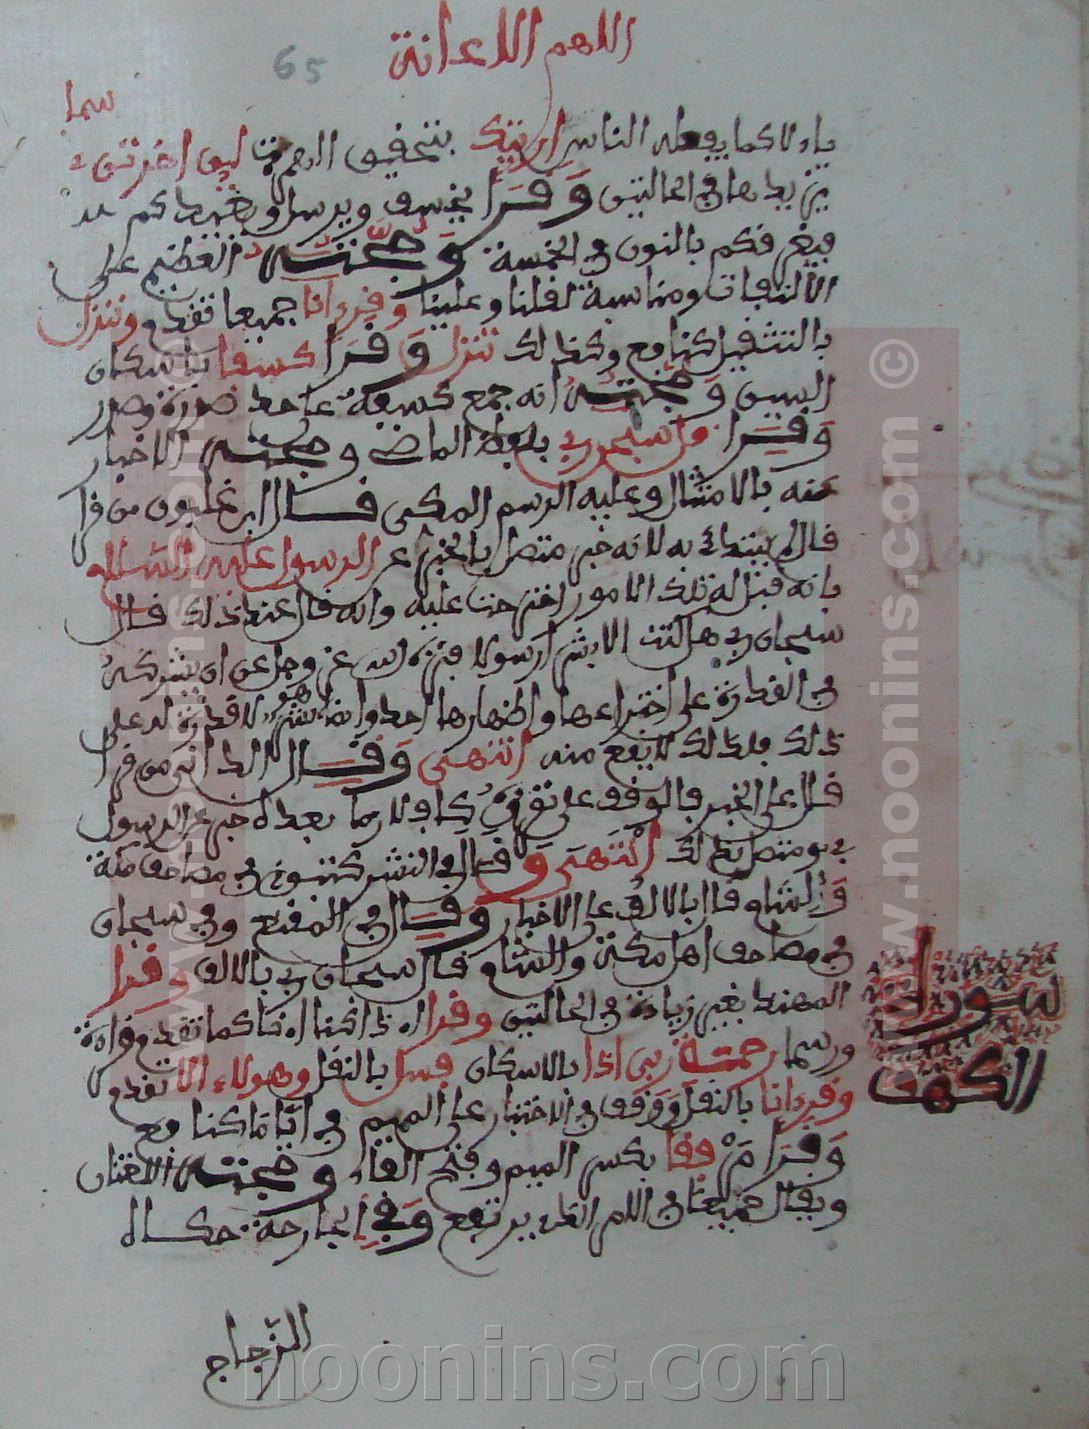 اللهم الاعانة
65
سما
ياء لا كما يفعله الناس ارءيتك بتحقيق الهمزة لين اخرتن
يزيدها في الحالتين وقرا يخسف ويرسل ويعيدكم
فيغرقكم بالنون في الخمسة وحجته العظيم على
الالتفات ومناسبة لقلنا وعلينا وقرءانا جميعا تقدم وننزل
بالتثقيل كنافع وكذلك تنزل وقرا كسفا باسكان
السين وحجته انه جمع كسفة
وقرا قل سبحن ربي بلفظ الماضي وحجته الاخبار
عنه بالامتثال وعليه الرسم المكي قال ابن غلبون من قرا
قال لم يبتدئ به لانه خبر متصل بالخبر عن الرسول عليه السلام
بانه قيل له تلك الامور اقترحت عليه وانه قال عند ذلك قال
سبحان ربي هل كنت الا بشرا رسولا فنزه الله عز وجل عن ان يشركه
في القدرة على اختراعها واظهارها احد وانما هو بشر لا قدرة له على
ذلك فلذلك لا يقع منه انتهى وقال الداني من قرا
قل على الخبر فالوقف على نقرؤه كاف لان ما بعده خبر عن الرسول
فهو متصل بذلك انتهى وقال في النشر كتبوه في مصاحف مكة
والشام قال بالالف على الاخبار وقال في المقنع وفي سبحان
في مصاحف اهل مكة والشام قال سبحان ربي بالالف وقرا
المهتد بغير زيادة في الحالتين وقرا اءذا كنا اءنا كما تقدم قراءة
ورسما رحمة ربي اذا بالاسكان فسل بالنقل وهولاء الا تقدم
وقرءانا بالنقل ووقف في الاختبار على الميم في ايا ما كنافع
سورة
الكهف
وقرا مرفقا بكسر الميم وفتح الفاء وحجته اللغتان
ويقال جميعا في الامر الذي يرتفق وفي الجارحة حكا
الزجاج
www.noonins.com ©
www.noonins.com ©
noonins.com